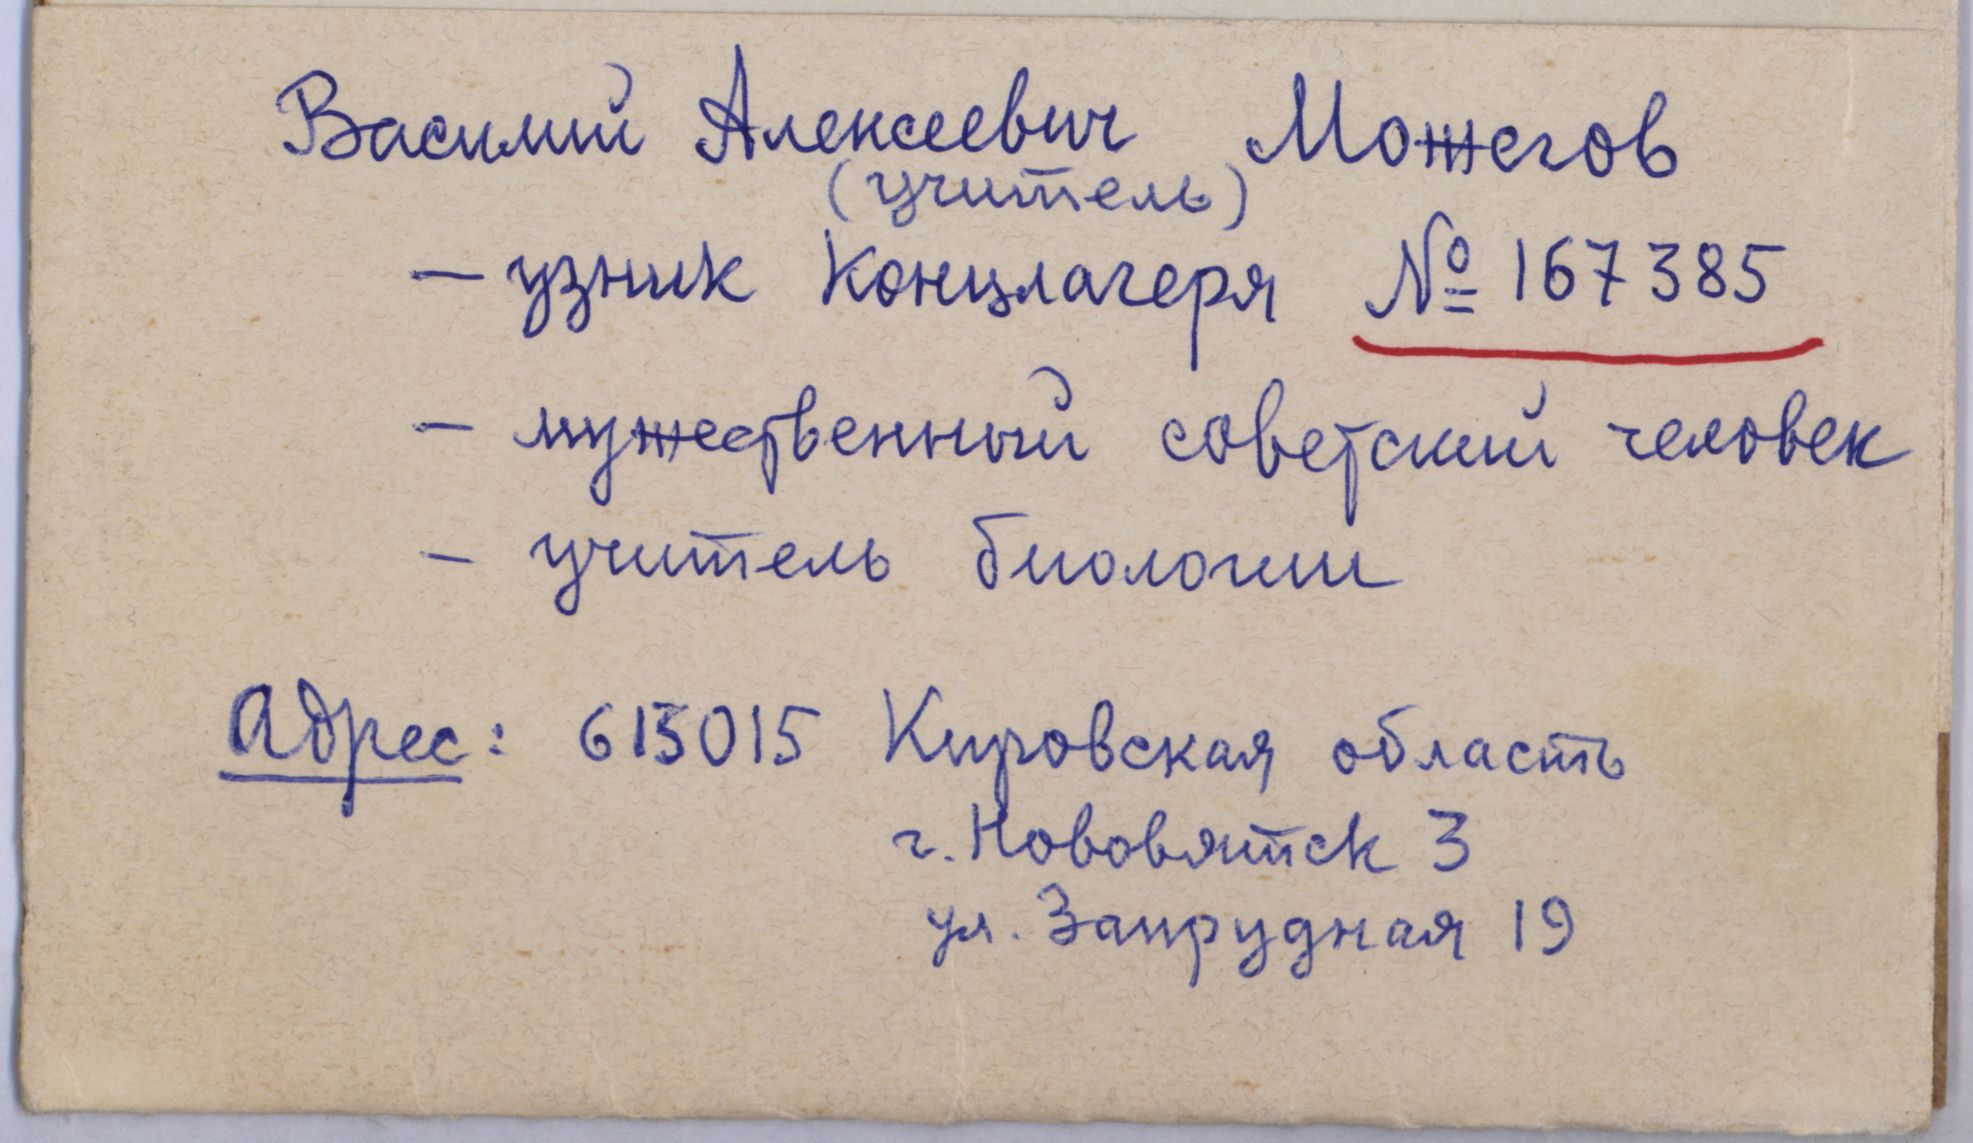 Василий Алексеевич Можегов
(учитель)
– узник Концлагеря № 167385
– мужественный советский человек
– учитель биологии
Адрес: 613015 Кировская область
г. Нововятск 3
ул. Запрудная 19